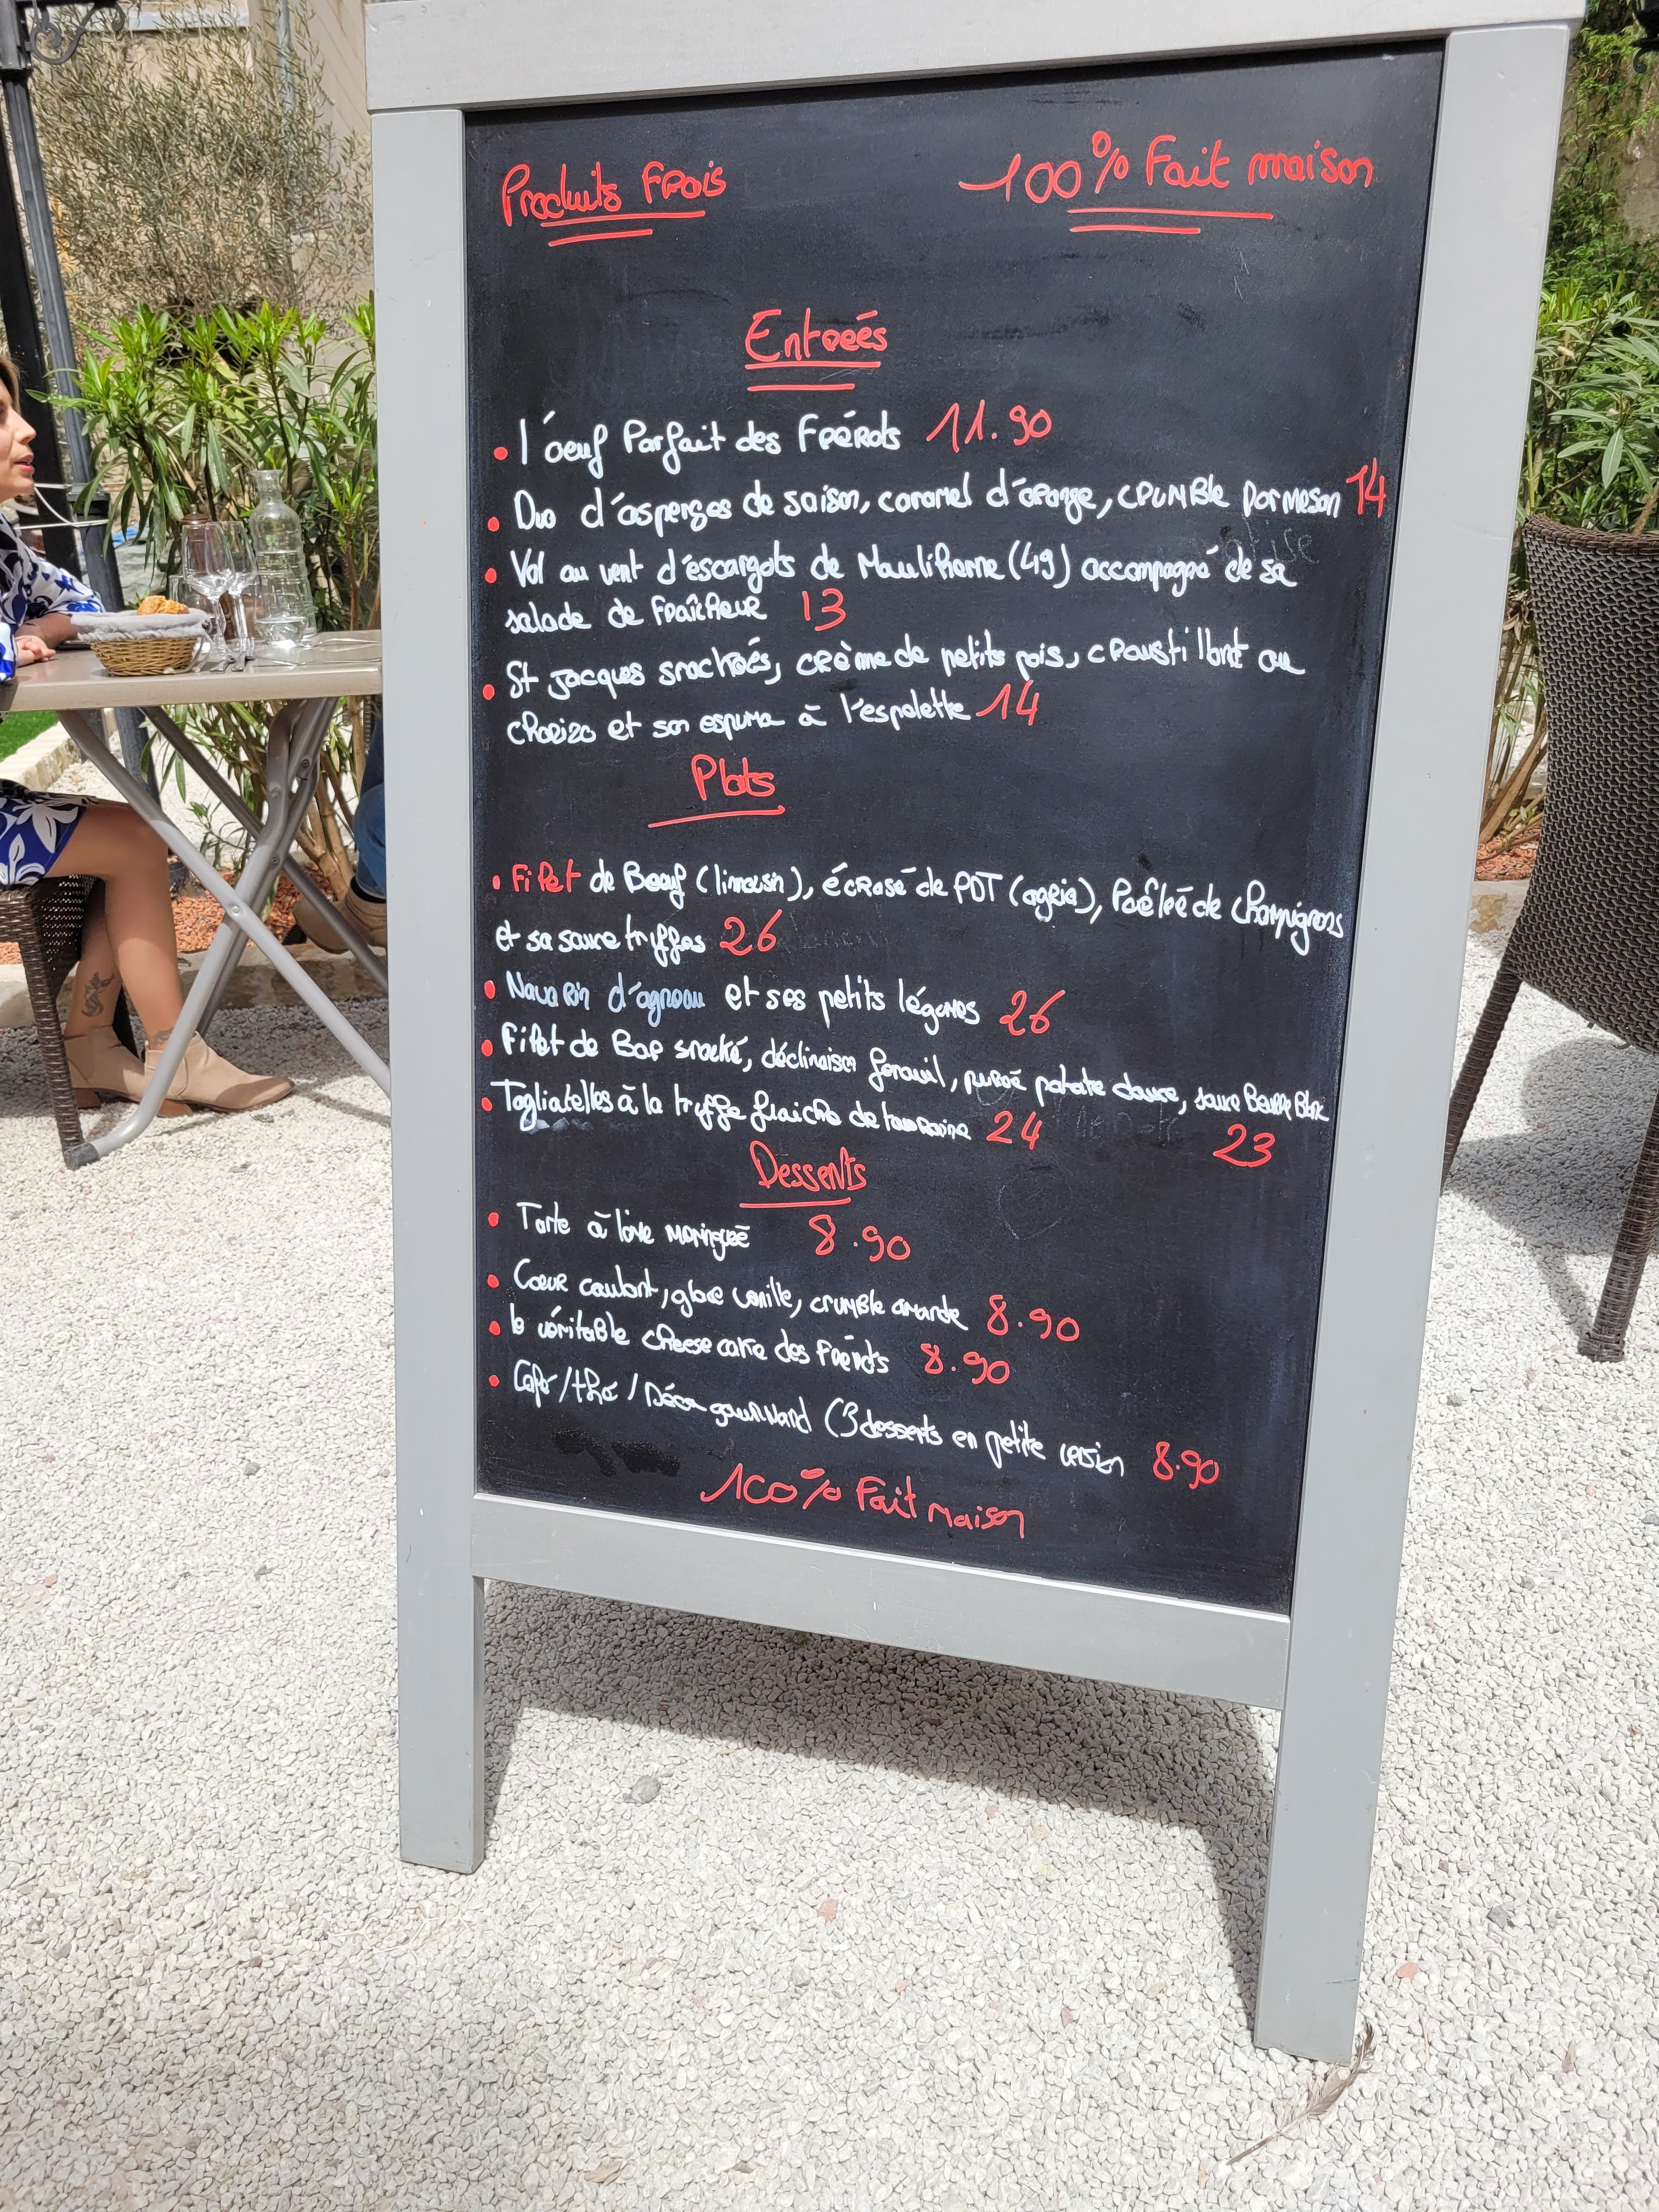 Produits Frais
100% Fait maison
Entrées
• l'oeuf Parfait des Frérots 11.90
• Duo d'asperges de saison, caramel d'orange, crumble parmesan 14
• Vol au vent d'escargots de Mauliherne (49) accompagné de sa
salade de fraîcheur 13
• St Jacques snackées, crème de petits pois, croustillant au
chorizo et son espuma à l'espelette 14
Plats
• Filet de Boeuf (limousin), écrasé de PDT (agria), Poêlée de champignons
et sa sauce truffes 26
• Navarin d'agneau et ses petits légumes 26
• Filet de Bar snacké, déclinaison fenouil, purée patate douce, sauce Beurre Blanc
23
• Tagliatelles à la truffe fraiche de touraine 24
Desserts
• Tarte à l'orange meringuée 8.90
• Coeur coulant, glace vanille, crumble amande 8.90
• le véritable cheese cake des Frérots 8.90
• Café/thé/Déca gourmand (3 desserts en petite version 8.90
100% Fait maison